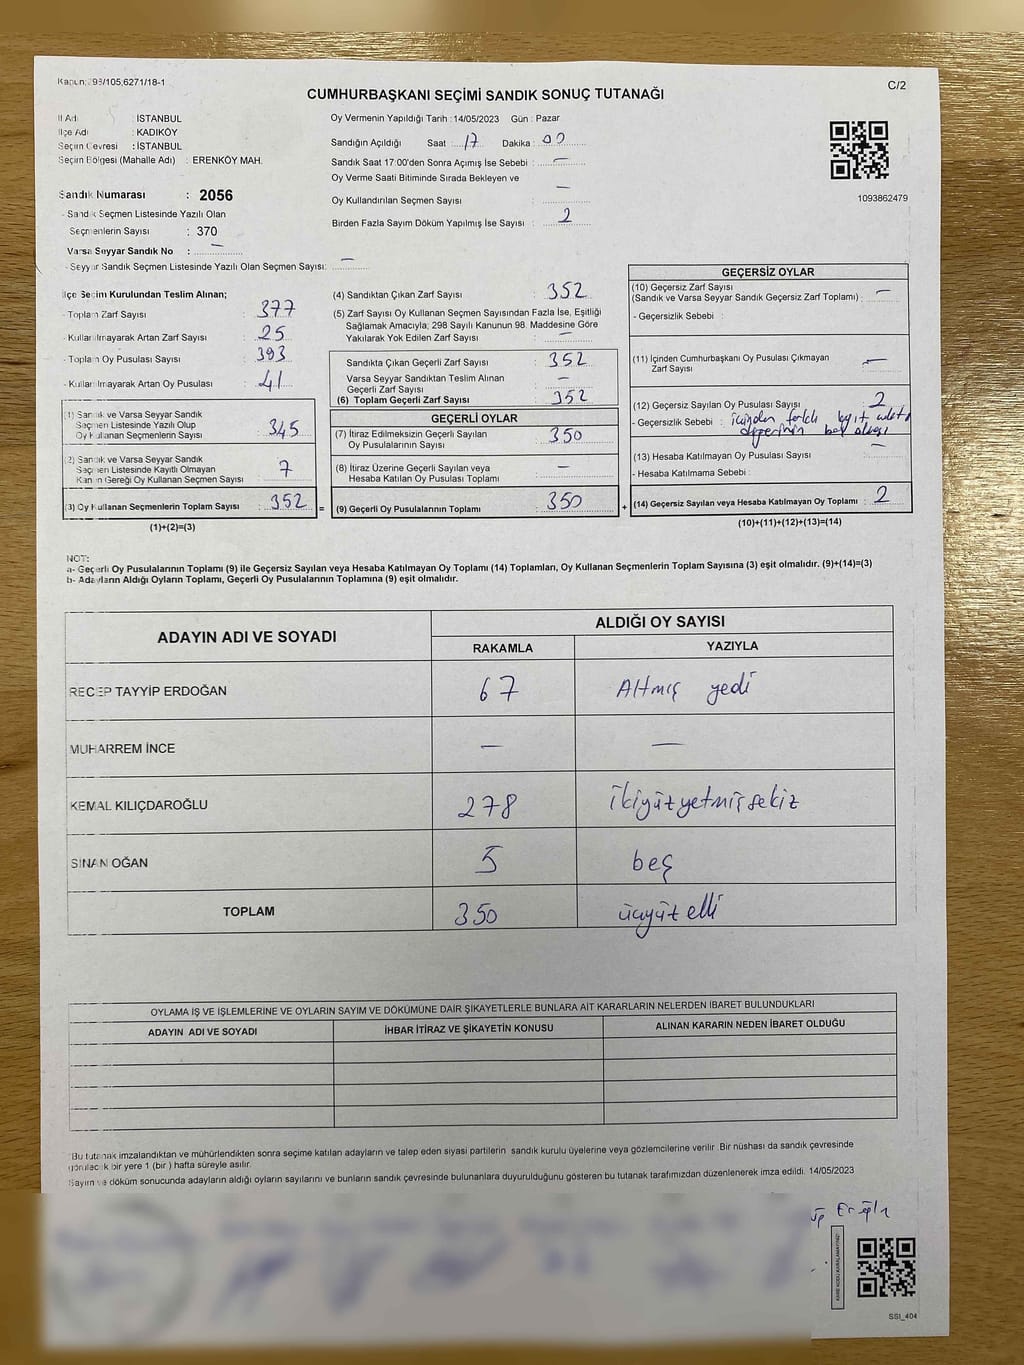 Kanun: 298/105,6271/18-1
C/2
CUMHURBAŞKANI SEÇİMİ SANDIK SONUÇ TUTANAĞI
İl Adı : İSTANBUL
İlçe Adı : KADIKÖY
Seçim Çevresi : İSTANBUL
Seçim Bölgesi (Mahalle Adı) : ERENKÖY MAH.
Sandık Numarası : 2056
- Sandık Seçmen Listesinde Yazılı Olan
Seçmenlerin Sayısı : 370
Varsa Seyyar Sandık No : —
- Seyyar Sandık Seçmen Listesinde Yazılı Olan Seçmen Sayısı: —
Oy Vermenin Yapıldığı Tarih : 14/05/2023 Gün : Pazar
Sandığın Açıldığı Saat : 17 Dakika : 00
Sandık Saat 17:00'den Sonra Açımış İse Sebebi : —
Oy Verme Saati Bitiminde Sırada Bekleyen ve
Oy Kullandırılan Seçmen Sayısı : —
Birden Fazla Sayım Döküm Yapılmış İse Sayısı : 2
1093862479
İlçe Seçim Kurulundan Teslim Alınan;
- Toplam Zarf Sayısı : 377
- Kullanılmayarak Artan Zarf Sayısı : 25
- Toplam Oy Pusulası Sayısı : 393
- Kullanılmayarak Artan Oy Pusulası : 41
(1) Sandık ve Varsa Seyyar Sandık
Seçmen Listesinde Yazılı Olup
Oy Kullanan Seçmenlerin Sayısı : 345
(2) Sandık ve Varsa Seyyar Sandık
Seçmen Listesinde Kayıtlı Olmayan
Kanun Gereği Oy Kullanan Seçmen Sayısı : 7
(3) Oy Kullanan Seçmenlerin Toplam Sayısı : 352 =
(1)+(2)=(3)
(4) Sandıktan Çıkan Zarf Sayısı : 352
(5) Zarf Sayısı Oy Kullanan Seçmen Sayısından Fazla İse, Eşitliği
Sağlamak Amacıyla; 298 Sayılı Kanunun 98. Maddesine Göre
Yakılarak Yok Edilen Zarf Sayısı : —
Sandıkta Çıkan Geçerli Zarf Sayısı : 352
Varsa Seyyar Sandıktan Teslim Alınan
Geçerli Zarf Sayısı : —
(6) Toplam Geçerli Zarf Sayısı : 352
GEÇERLİ OYLAR
(7) İtiraz Edilmeksizin Geçerli Sayılan
Oy Pusulalarının Sayısı : 350
(8) İtiraz Üzerine Geçerli Sayılan veya
Hesaba Katılan Oy Pusulası Toplamı : —
(9) Geçerli Oy Pusulalarının Toplamı : 350 +
GEÇERSİZ OYLAR
(10) Geçersiz Zarf Sayısı
(Sandık ve Varsa Seyyar Sandık Geçersiz Zarf Toplamı) : —
- Geçersizlik Sebebi :
(11) İçinden Cumhurbaşkanı Oy Pusulası Çıkmayan
Zarf Sayısı : —
(12) Geçersiz Sayılan Oy Pusulası Sayısı : 2
- Geçersizlik Sebebi : içinden farklı
(13) Hesaba Katılmayan Oy Pusulası Sayısı : —
- Hesaba Katılmama Sebebi :
(14) Geçersiz Sayılan veya Hesaba Katılmayan Oy Toplamı : 2
(10)+(11)+(12)+(13)=(14)
NOT:
a- Geçerli Oy Pusulalarının Toplamı (9) ile Geçersiz Sayılan veya Hesaba Katılmayan Oy Toplamı (14) Toplamları, Oy Kullanan Seçmenlerin Toplam Sayısına (3) eşit olmalıdır. (9)+(14)=(3)
b- Adayların Aldığı Oyların Toplamı, Geçerli Oy Pusulalarının Toplamına (9) eşit olmalıdır.
ADAYIN ADI VE SOYADI ALDIĞI OY SAYISI
RAKAMLA YAZIYLA
RECEP TAYYİP ERDOĞAN 67 Altmış yedi
MUHARREM İNCE — —
KEMAL KILIÇDAROĞLU 278 ikiyüzyetmişsekiz
SİNAN OĞAN 5 beş
TOPLAM 350 üçyüz elli
OYLAMA İŞ VE İŞLEMLERİNE VE OYLARIN SAYIM VE DÖKÜMÜNE DAİR ŞİKAYETLERLE BUNLARA AİT KARARLARIN NELERDEN İBARET BULUNDUKLARI
ADAYIN ADI VE SOYADI İHBAR İTİRAZ VE ŞİKAYETİN KONUSU ALINAN KARARIN NEDEN İBARET OLDUĞU
Bu tutanak imzalandıktan ve mühürlendikten sonra seçime katılan adayların ve talep eden siyasi partilerin sandık kurulu üyelerine veya gözlemcilerine verilir. Bir nüshası da sandık çevresinde
görülecek bir yere 1 (bir ) hafta süreyle asılır.
Sayım ve döküm sonucunda adayların aldığı oyların sayılarını ve bunların sandık çevresinde bulunanlara duyurulduğunu gösteren bu tutanak tarafımızdan düzenlenerek imza edildi. 14/05/2023
SSİ_404